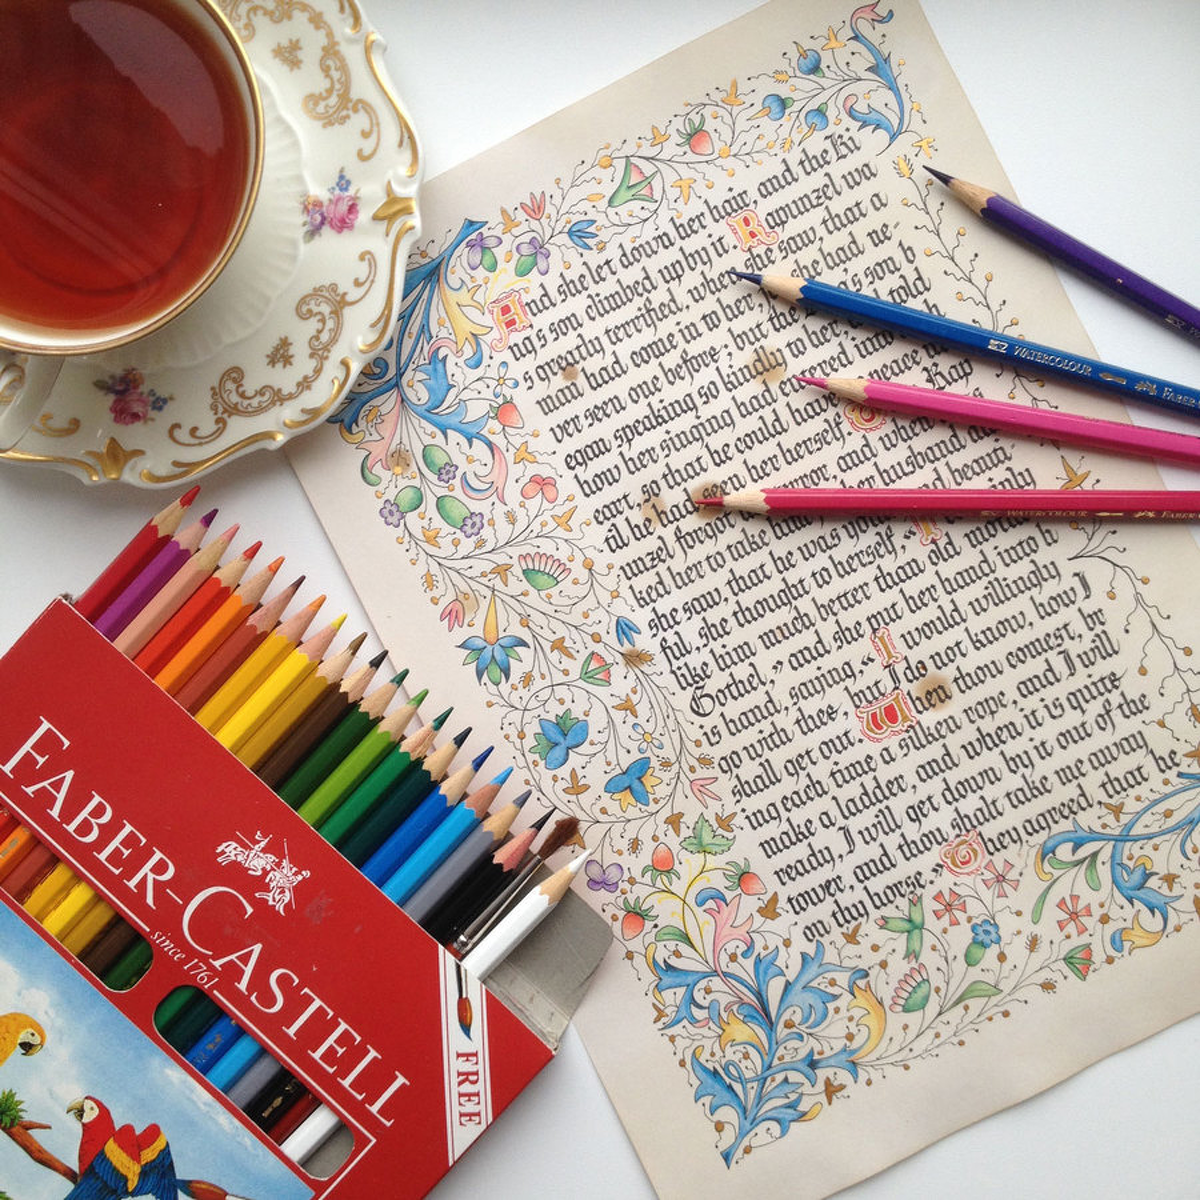 And she let down her hair, and the Ki
ng's son climbed up by it. Rapunzel wa
s greatly terrified, when she saw, that a
man had come in to her, she had ne
ver seen one before; but the son b
egan speaking so kindly to her, told
how her singing had entered into
eart, so that he could have peace
til he had seen her herself. Rap
unzel forgot terror, and when
ked her to take him her husband,
she saw, that he was beauti
ful, she thought to herself, "I
like him much better than old
Gothel," and she put her hand into h
is hand, saying, "I would willingly
go with thee, but I do not know, how I
shall get out. When thou comest, br
ing each time a silken rope, and I will
make a ladder, and when it is quite
ready, I will get down by it out of the
tower, and thou shalt take me away
on thy horse." They agreed, that he
WATERCOLOUR FABER-
WATERCOLOUR FABER-
FABER-CASTELL
since 1761
FREE